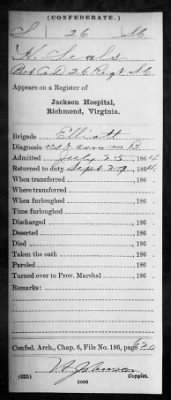 (CONFEDERATE.)
S 26
Appears on a Register of
Jackson Hospital,
Richmond, Virginia.
Brigade Elliott
Diagnosis
Admitted July 25, 1864
Returned to duty Sept 29, 1864.
When transferred , 186 .
Where transferred
When furloughed , 186 .
Time furloughed
Discharged , 186 .
Deserted , 186 .
Died , 186 .
Taken the oath , 186 .
Paroled , 186 .
Turned over to Prov. Marshal , 186 .
Remarks:
Confed. Arch., Chap. 6, File No. 186, page 620
Johnson
(635) Copyist.